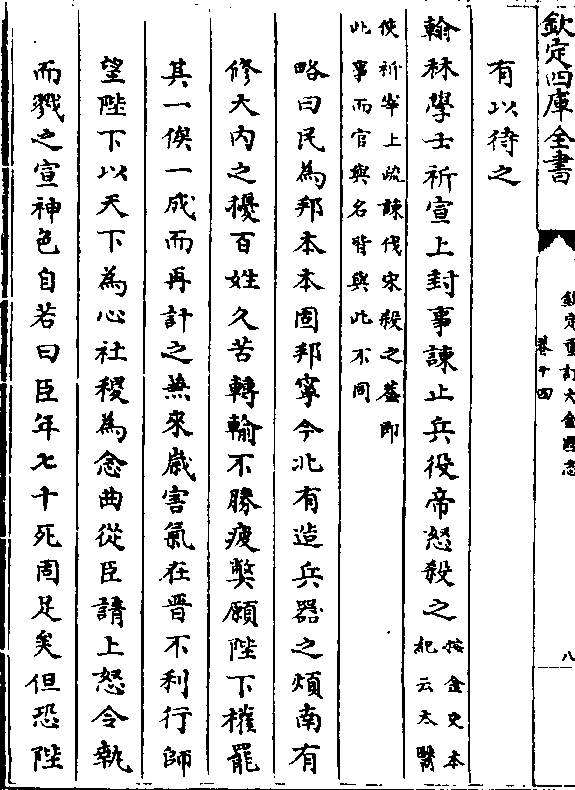 欽定四庫全書
欽定重訂大金國志
卷十四
八
有以待之
翰林學士祈宣上封事諫止兵役帝怒殺之
按金史本
紀云太醫
使祈宰上疏諫伐宋殺之蓋即
此事而官與名皆與此不同
略曰民為邦本本固邦寧今北有造兵器之煩南有
修大内之擾百姓久苦轉輸不勝疲獘願陛下權罷
其一俟一成而再計之兼來歲害氣在晉不利行師
望陛下以天下為心社稷為念曲從臣請上怒令執
而戮之宣神色自若曰臣年七十死固足矣但恐陛